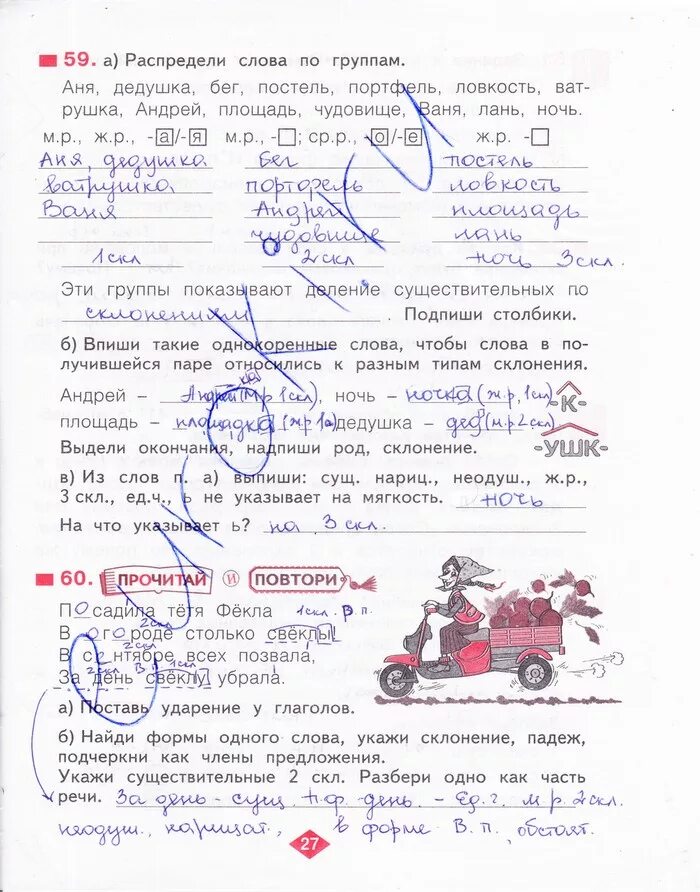 59. а) Распредели слова по группам.
Аня, дедушка, бег, постель, портфель, ловкость, ват-
рушка, Андрей, площадь, чудовище, Ваня, лань, ночь.
м.р., ж.р., -а/-я м.р., -□; ср.р., о/-е ж.р. -□
Аня, дедушка бег постель
ватрушка портфель ловкость
Ваня Андрей площадь
чудовище лань
1 скл 2 скл ночь 3 скл.
Эти группы показывают деление существительных по
склонениям. Подпиши столбики.
б) Впиши такие однокоренные слова, чтобы слова в по-
лучившейся паре относились к разным типам склонения.
Андрей – (м.р 1 скл), ночь – ночка (ж.р, 1 скл) -К-
площадь – площадка (ж.р 1а) дедушка – дед (м.р 2 скл) -УШК-
Выдели окончания, надпиши род, склонение.
в) Из слов п. а) выпиши: сущ. нариц., неодуш., ж.р.,
3 скл., ед.ч., ь не указывает на мягкость. ночь
На что указывает ь? на 3 скл.
60. ПРОЧИТАЙ И ПОВТОРИ
Посадила тётя Фёкла 1 скл. Р.п.
2 скл
В огороде столько свёклы!
2 скл
В сентябре всех позвала,
2 скл В. 1 скл
За день свёклу убрала.
а) Поставь ударение у глаголов.
б) Найди формы одного слова, укажи склонение, падеж,
подчеркни как члены предложения.
Укажи существительные 2 скл. Разбери одно как часть
речи. За день – сущ. Н.ф. – день. – Ед.ч, м.р. 2 скл.
неодуш., нарицат., в форме В.п., обстоят.
27
urokki.ru